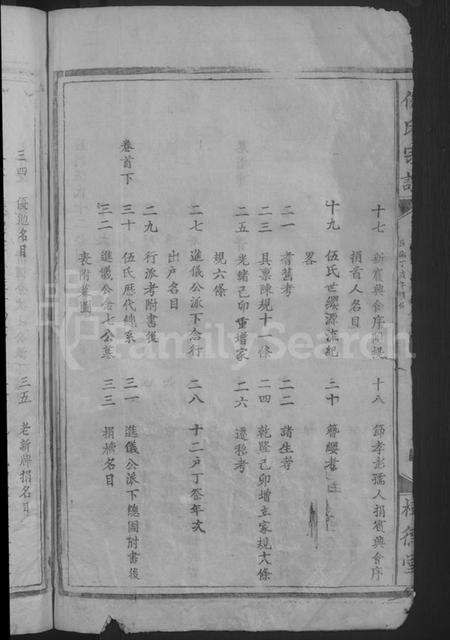 伍氏宗譜
十七 新賓興會序附規
捐首人名目
十八 節孝彭孺人捐賓興會序
十九 伍氏世繼源流紀
畧
二十 簪纓考
二一 耆舊考
二二 諸生考
二三 具稟陳規十條
二四 乾隆己卯增立家規六條
二五 光緒己卯重增家
規六條
二六 遷移考
二七 進儀公派下念行
出戶名目
二八 十二戶丁祭年次
卷首下
二九 行派考附書後
三十 伍氏歷代總系
三一 進儀公派下總圖附書後
三二 進儀公倉七公墓
表附墓圖
三三 捐襀名目
三四 優池名目
三五 老新牌捐名目
FamilySearch